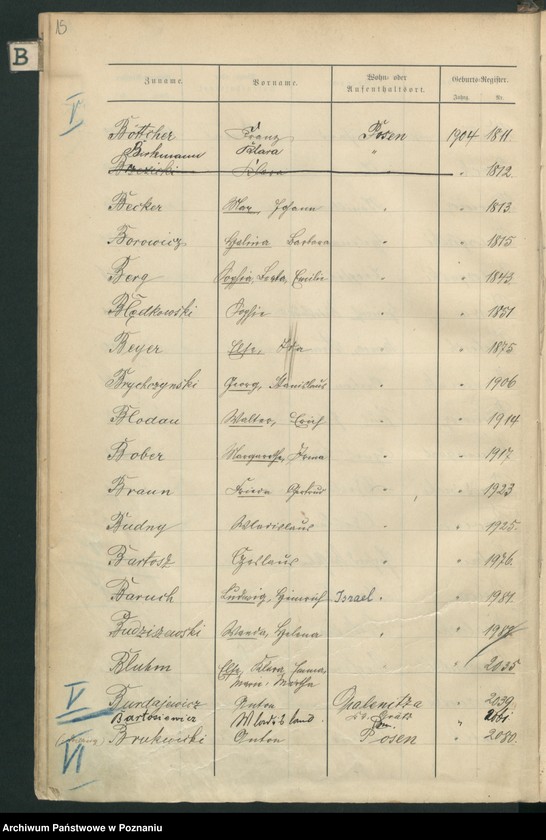 15
B
Zuname. Vorname. Wohn- oder Aufenthaltsort. Geburts-Register.
Jahrg. Nr.
V
Böttcher Franz Posen 1904 1811
Birkmann Klara "
Klara " " 1812
Becker Max Johann " " 1813
Borowicz Halina Barbara " " 1815
Berg Sophie, Berta, Cecilie " " 1843
Błędkowski Sophie " " 1851
Beyer Else, Ida " " 1875
Brychczynski Georg, Stanislaus " " 1906
Blodau Walter, Erich " " 1914
Bober Margarethe, Irma " " 1917
Braun Gertrud " " 1923
Budny Wladislaus " " 1925
Bartosz Czeslaus " " 1976
Baruch Ludwig, Heinrich Israel " " 1981
Budziszewski Wanda, Helena " " 1989
Bluhm Else, Klara, Emma, " " 2035
Martha
V
Burdajewicz Anton 2039
Bartosiewicz Wladisland. "
Brukwicki Anton Posen " 2080
VI
Archiwum Państwowe w Poznaniu